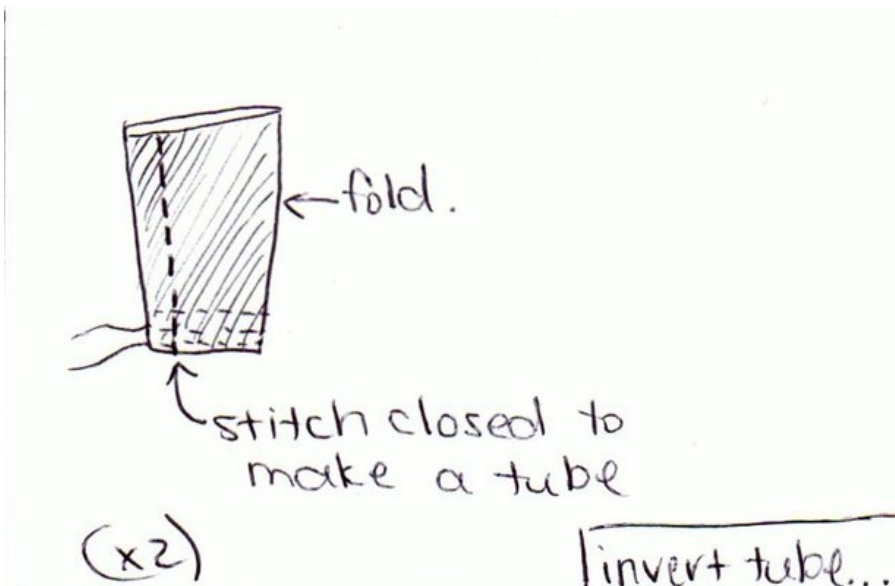 fold.
stitch closed to
make a tube
(x2)
invert tube...